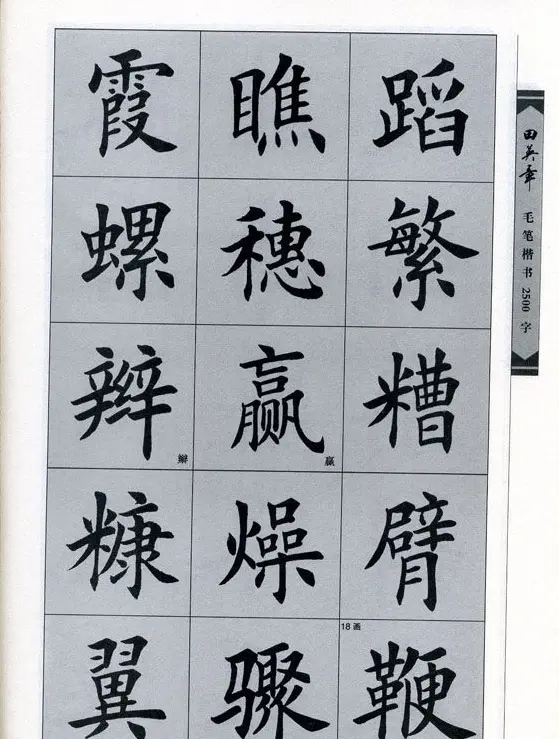 霞 瞧 蹈
螺 穗 繁
辫 赢 糟
辮 贏
糠 燥 臂
18画
翼 骤 鞭
田英章 毛笔楷书2500字